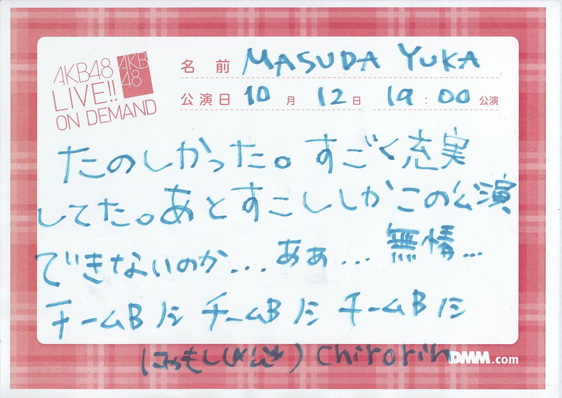 AKB48
LIVE!!
ON DEMAND
AKB
48
名 前 MASUDA YUKA
公演日 10 月 12 日 19:00 公演
たのしかった。すごく充実
してた。あとすこししかこの公演
できないのか...ああ...無情...
チームB
チームB
チームB
Chirorin
DMM.com